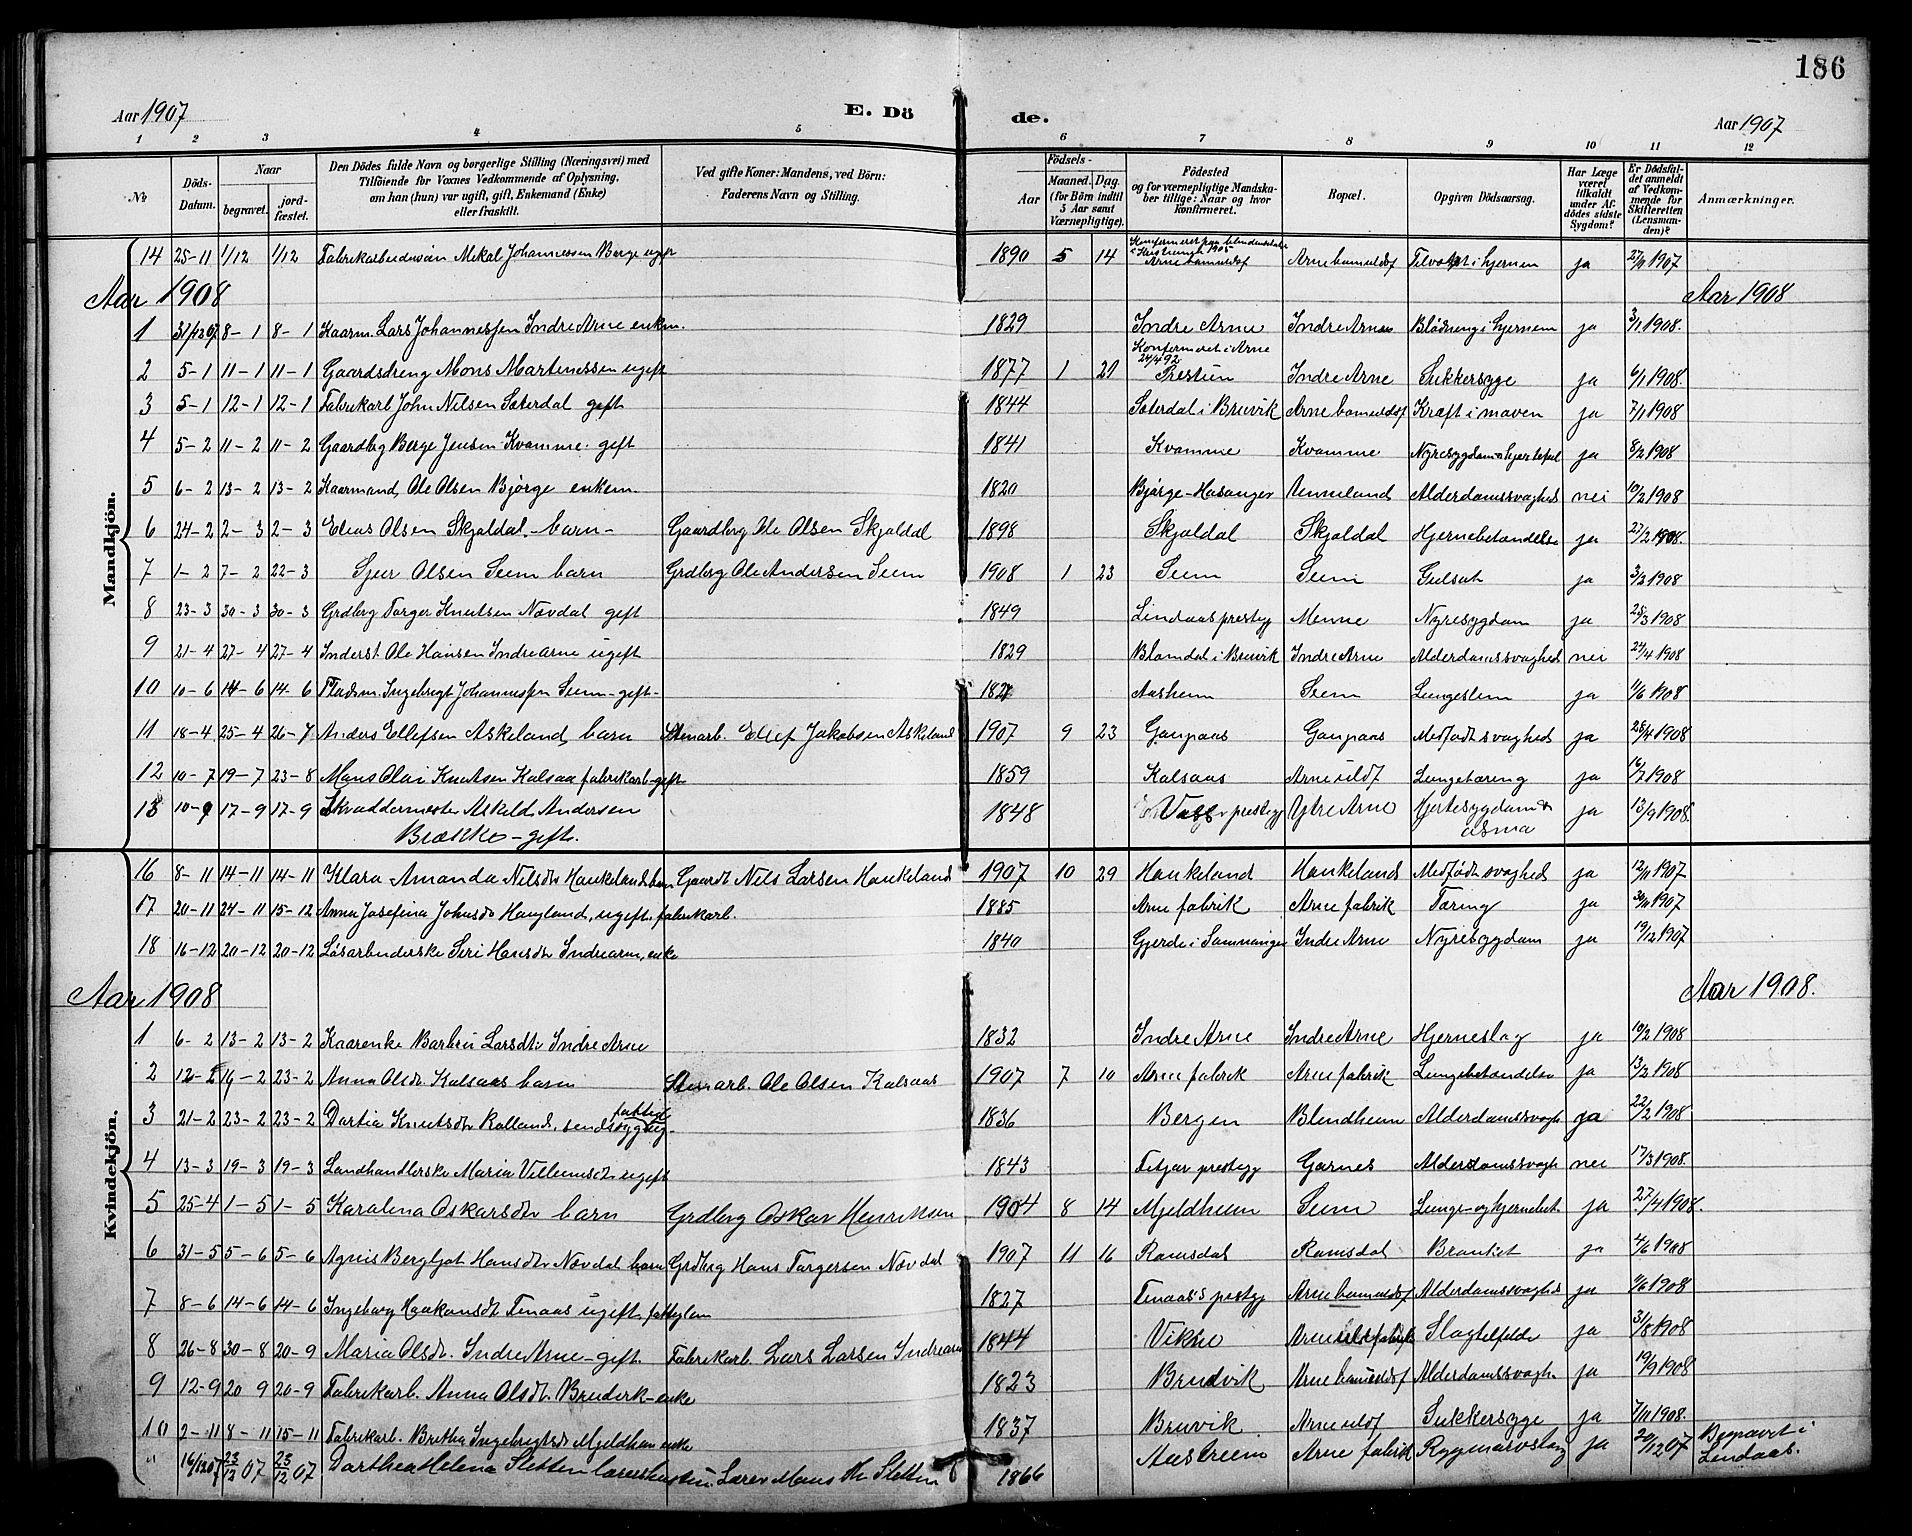 186
Aar 1907 E. Dö de. Aar 1907
1 2 3 4 5 6 7 8 9 10 11 12
№ Döds-Datum. Naar begravet. jord-fæstet. Den Dödes fulde Navn og borgerlige Stilling (Næringsvei) med Tilföiende for Voxnes Vedkommende af Oplysning, om han (hun) var ugift, gift, Enkemand (Enke) eller fraskilt. Ved gifte Koner: Mandens, ved Börn: Faderens Navn og Stilling. Födsels- Aar Maaned. Dag. (for Börn indtil 5 Aar samt Værnepligtige). Födested og for værnepligtige Mandskaber tillige: Naar og hvor konfirmeret. Bopæl. Opgiven Dödsaarsag. Har Læge været tilkaldt under Afdödes sidste Sygdom? Er Dödsfaldet anmeldt af Vedkommende for Skifteretten (Lensmanden)? Anmærkninger.
Mandkjön.
14 25-11 1/12 1/12 Mekal Johannessen Berge ugift 1890 5 14 Arne ja 27/11 1907
Aar 1908 Aar 1908
1 31/12 07 8-1 8-1 Kaarm. Lars Johannessen Indre Arne enkm. 1829 Indre Arne Indre Arne Blødning i hjernen ja 3/1 1908.
2 5-1 11-1 11-1 Gaardsdreng Mons Martinessen ugift 1877 1 21 Konfirmeret i Arne 24/4 92 Prestun Indre Arne Sukkersyge ja 6/1 1908.
3 5-1 12-1 12-1 Fabrikarb John Nilsen Sæterdal gift 1844 Sæterdal i Bruvik Arne Kræft i maven ja 7/1 1908
4 5-2 11-2 11-2 Gaardbg Berge Jensen Kvamme. gift 1841 Kvamme Kvamme ja 8/2 1908
5 6-2 13-2 13-2 Kaarmand, Ole Olsen Bjørge enkem. 1820 Bjørge-Hosanger Unneland Alderdomssvaghed nei 10/2 1908
6 24-2 2-3 2-3 Elias Olsen Skjoldal.-barn- Gaardbrg Ole Olsen Skjoldal 1898 Skjoldal Skjoldal Hjernebetændelse ja 27/2 1908.
7 1-2 7-2 22-3 Sjur Olsen Seim barn Grdbrg Ole Andersen Seim 1908 1 23 Seim Seim Gulsot ja 3/2 1908
8 23-3 30-3 30-3 Grdbrg Torger Knutsen Novdal gift 1849 Lindaas prestegj Menne Nyresygdom ja 28/3 1908
9 21-4 27-4 27-4 Inderst Ole Hansen Indre Arne ugift 1829 Blomdal i Bruvik Indre Arne Alderdomssvaghed nei 24/4 1908
10 10-6 14-6 14-6 Pladsm. Ingebrigt Johannessen Seim-gift- Aasheim Seim Lungeslem ja 11/6 1908
11 18-4 25-4 26-7 Anders Ellefsen Askeland, barn Stenarb. Ellef Jakobsen Askeland 1907 9 23 Gaupaas Gaupaas Medfødt svaghed ja 28/4 1908
12 10-7 19-7 23-8 Mons Olai Knutsen Kalsaa fabrikarb-gift 1859 Kalsaas Arne uldf Lungetæring ja 16/7 1908
13 10-9 17-9 17-9 Skræddermester Askild Andersen
Brække-gift. 1848 Voss prestegj Ytre Arne Hjertesygdom & asma ja 13/9 1908
Kvindekjön.
16 8-11 14-11 14-11 Klara Amanda Nilsdtr Haukeland barn Gaardt Nils Larsen Haukeland 1907 10 29 Haukeland Haukeland Medfødt svaghed ja 12/11 1907
17 20-11 24-11 15-12 Anna Josefina Johnsdt Haugland, ugift. fabrikarb. 1885 Arne fabrik Arne fabrik Tæring ja 30/11 1907
18 16-12 20-12 20-12 Løsarbeiderske Siri Hansdtr Indrearne, enke 1840 Gjerde i Samnanger Indre Arne Nyresygdom ja 19/12 1907
Aar 1908 Aar 1908.
1 6-2 13-2 13-2 Kaarenke Barbru Larsdtr Indre Arne 1832 Indre Arne Indre Arne Hjerneslag ja 10/2 1908
2 12-2 19-2 23-2 Anna Olsdtr Kalsaas barn Stenarb. Ole Olsen Kalsaas 1907 7 10 Arne fabrik Arne fabrik Lungebetændelse ja 13/2 1908
3 21-2 23-2 23-2 Dortia Knutsdtr Rolland, sindssyg fattig ug- 1836 Bergen Blindheim Alderdomssvagh ja 22/2 1908
4 13-3 19-3 19-3 Landhandlerske Maria Villumsdt. ugift 1843 Fitjar prestegj Garnes Alderdomssvagh nei 17/3 1908.
5 25-4 1-5 1-5 Karolina Oskarsdtr barn Grdbrg Oskar Henriksen 1904 8 14 Mjeldheim Seim Lunge-og hjernebet ja 27/4 1908.
6 31-5 5-6 5-6 Agnis Bergljot Hansdtr Novdal barn Grdbrg Hans Torgersen Novdal 1907 11 16 Romsdal Romsdal Bronkit ja 4/6 1908
7 8-6 14-6 14-6 Ingeborg Haakonsdt Finaas ugift. fattiglem 1827 Finaas's prestegj Arne Alderdomssvaghed ja 11/6 1908
8 26-8 30-8 20-9 Maria Olsdt. Indre Arne-gift. Fabrikarb. Lars Larsen Indrearne 1844 Vikne Slagtilfælde ja 31/8 1908
9 12-9 20 9 20-9 Fabrikarb. Anna Olsdt. enke 1823 Brudvik Arne Alderdomssvagh. ja 19/9 1908
10 2-11 8-11 15-11 Fabrikarb. Britha Ingebrigtsdt Mjeldheim enke 1837 Bruvik Arne uldf Sukkersyge ja 7/11 1908.
" 16/12 07 23/12 07 23/12 07 Darthea Helena Sletten lærerhustru. Lærer Mons Sletten 1866 Aastveem Arne fabrik Rygmarvslag ja 20/12 07 Begravet i Lindaas.